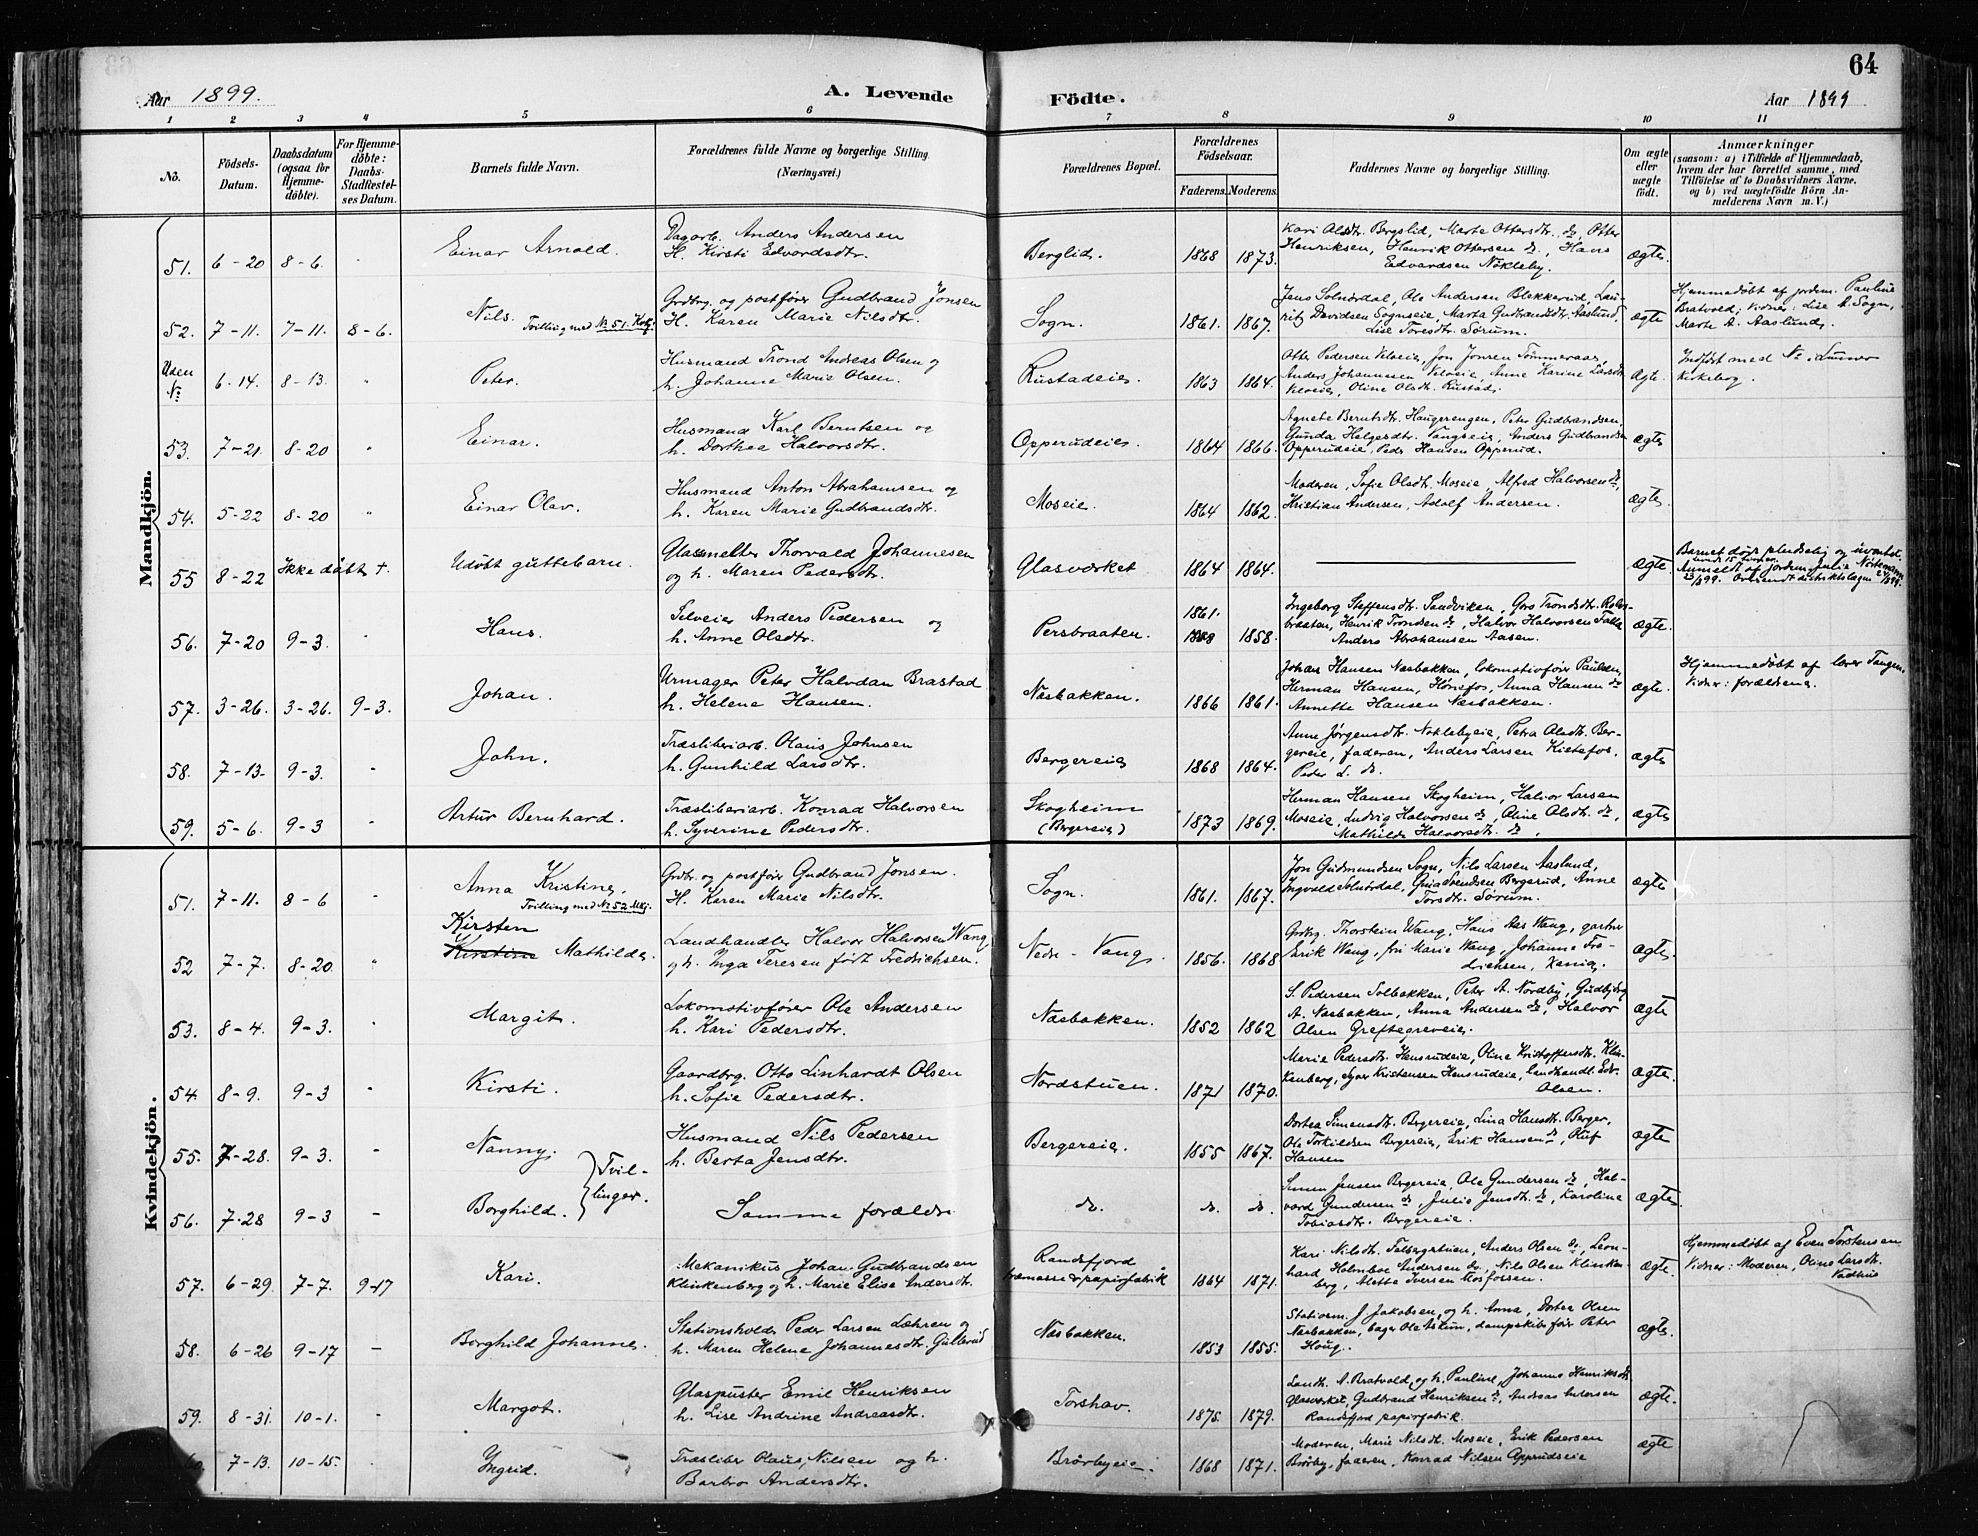 64
Aar 1899. A. Levende Födte. Aar 1899
1 2 3 4 5 6 7 8 9 10 11
No. Födsels-Datum. Daabsdatum (ogsaa for Hjemme-döbte). For Hjemme-döbte: Daabs-Stadfæstel-ses Datum. Barnets fulde Navn. Forældrenes fulde Navne og borgerlige Stilling (Næringsvei.) Forældrenes Bopæl. Forældrenes Födselsaar. Faderens. Moderens. Faddernes Navne og borgerlige Stilling. Om ægte eller uægte födt. Anmærkninger (saasom: a) i Tilfælde af Hjemmedaab, hvem der har forrettet samme, med Tilföielse af to Daabsvidners Navne, og b) ved uægtefödte Börn Anmelderens Navn m. V.)
Mandkjön.
51. 6-20 8-6. Einar Arnold. Dagarb. Anders Andersen
H. Kirsti Edvardsdtr. Berglid. 1868 1873. Kari Olsdtr. Bergslid, Marte Ottersdtr. do, Otter
Henriksen, Henrik Ottersen do, Hans
Edvardsen Nökleby. ægte
52. 7-11. 7-11. 8-6. Nils. Tvilling med No 51. Kvkj. Grdbrg. og postfører Gudbrand Jonsen
H. Karen Marie Nilsdtr. Sogn. 1861. 1867. Jens Solnördal, Ole Andersen Blekkerud, Lau-
ritz Davidsen Sognseie, Marta Gudbrandsdtr. Aaslund,
Lise Toresdtr. Sørum. ægte Hjemmedøbt af jordem. Pauline
Bratvold; Vidner: Lise A. Sogn,
Marte A. Aaslund.
Uden No 6-14. 8-13. " Peter. Husmand Trond Andreas Olsen og
h. Johanne Marie Olsen. Rustadeie. 1863 1864. Otter Pedersen Velseie, Jon Jonsen Tømmeraas,
Anders Johannessen Velseie, Anne Karine Larsdtr.
Velseie, Oline Olsdtr. Rustad. Ægte. Indført med No i Lunner
Kirkebog.
53. 7-21. 8-20 " Einar. Husmand Karl Berntsen og
h. Dorthea Halvorsdtr. Opperudeie. 1864 1866. Agnete Berntsdtr. Haugerengen, Peter Gudbrandsen,
Gunda Helgesdtr. Vangseie, Anders Gudbrandsen
Opperudeie, Peder Hansen Opperud. ægte
54. 5-22 8-20 " Einar Olav. Husmand Anton Abrahamsen og
h. Karen Marie Gudbrandsdtr. Moseie. 1864 1862. Moderen, Sofie Olsdtr. Moseie, Alfred Halvorsen do,
Kristian Andersen, Adolf Andersen. ægte.
55 8-22 Ikke døbt +. Udøbt guttebarn. Glasmelter Thorvald Johannesen
og h. Maren Pedersdtr. Glasværket 1864 1864. ægte. Barnet døde pludselig og uventet
Anmeldt af jordem. Julie
23/8 99. Oversendt distriktslægen 24/8 99.
56. 7-20 9-3. " Hans. Selveier Anders Pedersen og
h. Anne Olsdtr. Persbraaten. 1861. 1858. Ingeborg Steffensdtr. Sandviken, Goro Trondsdtr.
braaten, Henrik Trondsen do, Halvor Halvorsen Falla
Anders Abrahamsen Aasen. ægte.
57. 3-26. 3-26. 9-3. Johan. Urmager Peter Halvdan Brastad
h. Helene Hansen. Næsbakken. 1866 1861. Johan Hansen Næsbakken, lokomotivfører Paulsen,
Herman Hansen, Hønefos, Anna Hansen do
Annette Hansen Næsbakken. ægte. Hjemmedøbt af lærer Tangen.
Vidner: forældrene.
58. 7-13. 9-3. - John. Træsliberiarb. Olaus Johnsen
h. Gunhild Larsdtr. Bergereie 1868 1864. Anne Jørgensdtr. Nøklebyeie, Petra Olsdtr. Ber-
gereie, faderen, Anders Larsen Kistefos,
Peder L. do. ægte
59. 5-6. 9-3 " Artur Bernhard. Træsliberiarb. Konrad Halvorsen
h. Syverine Pedersdtr. Skogheim
(Bergereie) 1873 1869. Herman Hansen Skogheim, Halvor Larsen
Moseie, Ludvig Halvorsen do, Oline Olsdtr. do,
Mathilde Halvorsdtr. do. ægte
Kvindekjön.
51. 7-11. 8-6 " Anna Kristine. Tvilling med No 52 Mkj. Grdbr. og postfører Gudbrand Jonsen.
H. Karen Marie Nilsdtr. Sogn. 1861. 1867. Jon Gudmundsen Sogn, Nils Larsen Aaslund,
Ingvald Solnördal, Guia Svendsen Bergerud, Anne
Torsdtr. Sørum. ægte
52 7-7. 8-20. " Kirsten
Kirstine Mathilde. Landhandler Halvor Halvorsen Wang
og h. Inga Teresen født Fredriksen. Nedre-Vang. 1856. 1868 Grdbrg. Thorstein Wang, Hans Aas Wang, gartner
Erik Wang, fru Marie Wang, Johanne Fre-
driksen, Xania. ægte.
53. 8-4. 9-3. " Margit. Lokomotivfører Ole Andersen
h. Kari Pedersdtr. Næsbakken. 1852 1862 S. Pedersen Solbakken, Peter A. Nordby, Gudbjørg
A. Næsbakken, Anna Andersen do, Halvor
Olsen Greftegreveie. ægte
54. 8-9. 9-3 " Kirsti. Gaardbrg. Otto Linhardt Olsen
h. Sofie Pedersdtr. Nordstuen. 1871 1870. Marie Pedersdtr. Hensrudeie, Oline Kristoffersdtr. Klin-
kenberg, Syver Kristensen Hensrudeie, landhandl. Edv.
Olsen. ægte.
55. 7-28. 9-3. - Nanny. Tvil-
linger. Husmand Nils Pedersen
h. Berta Jensdtr. Bergereie. 1855 1867. Dortea Simensdtr. Bergereie, Lina Hansdtr. Berger,
Ole Torkildsen Bergereie, Erik Hansen do, Oluf
Hansen ægte
56. 7-28 9-3 - Borghild. Samme forældre do. do. do. Simen Jensen Bergereie, Ole Gundersen do, Hal-
vord Gundersen do, Julie Jensdtr. do, Karoline
Tobiasdtr. Bergereie. ægte
57. 6-29 7-7. 9-17 Kari. Mekanikus Johan Gudbrandsen
Klinkenberg og h. Marie Elise Andersdtr. Randsfjord
træmasse & papirfabrik 1864 1871. Kari Nilsdtr. Tolbergstuen, Anders Olsen do, Leon-
hard Holmboe Andersen do, Nils Olsen Klinken-
berg, Mette Iversen Flosfossen. ægte. Hjemmedøbt af Even Torstensen
Vidner: Moderen, Oline Larsdtr.
58. 6-26 9-17 - Borghild Johanne. Stationsholder Peder Larsen Løhren og
h. Maren Helene Johannesdtr. Gullerud Næsbakken. 1853 1855. Stationsm. J. Jakobsen, og h. Anna, Dortea Olsen
Næsbakken, bager Ole Askum, dampskibsfører Peter
Houg. ægte.
59. 8-31. 10-1. - Margot. Glaspuster Emil Henriksen
h. Lise Andrine Andreasdtr. Torshav. 1875. 1879. Landh. A. Bratvold, og h. Pauline, Johanne Henriksdtr.
Glasværket, Gudbrand Henriksen do, Andreas Andersen
Randsfjord papirfabrik. ægte.
7-13. 10-15. " Yngrid. Træsliber Olaus Nilsen og h.
Barbro Andersdtr. Brørbyeie. 1868 1871. Moderen, Marie Nilsdtr. Moseie, Erik Pedersen
Brørby, faderen, Konrad Nilsen Opprudseie ægte